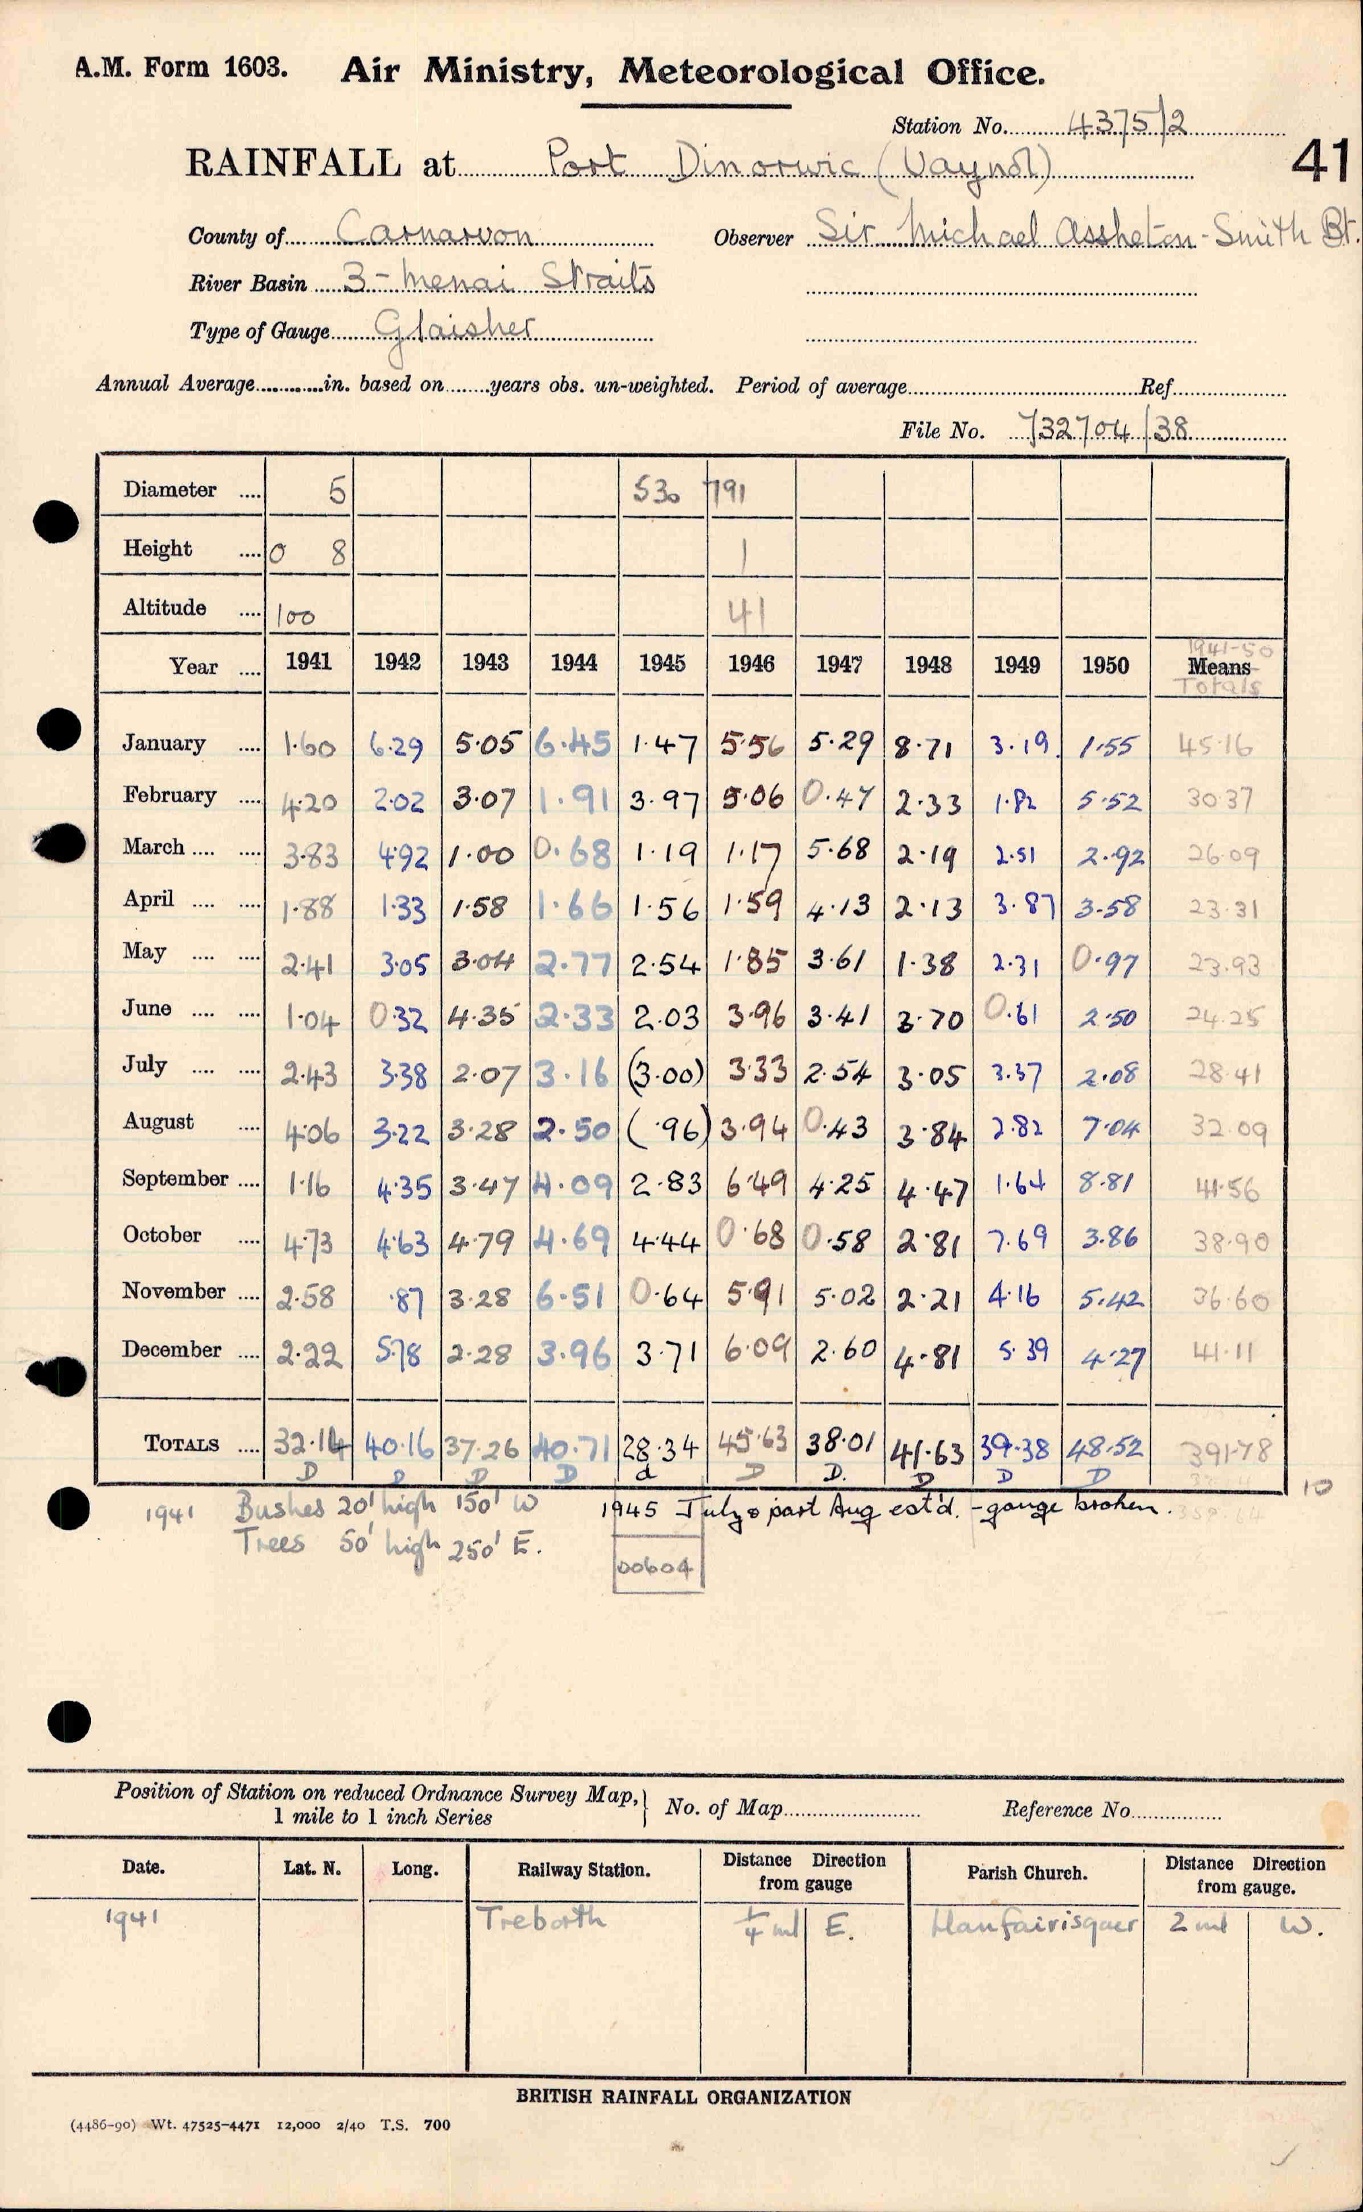 A.M. Form 1603. Air Ministry, Meteorological Office.
Station No. 4375/2
RAINFALL at Port Dinorwic (Vaynol) 41
County of Carnarvon Observer Sir Michael Assheton-Smith Bt.
River Basin 3 - Menai Straits
Type of Gauge Glaisher
Annual Average in. based on years obs. un-weighted. Period of average Ref
File No. 732704/38
Diameter 5 530 791
Height 0 8 1
Altitude 100 41
1941-50
Year 1941 1942 1943 1944 1945 1946 1947 1948 1949 1950 Means
Totals
January 1.60 6.29 5.05 6.45 1.47 5.56 5.29 8.71 3.19 1.55 45.16
February 4.20 2.02 3.07 1.91 3.97 5.06 0.47 2.33 1.82 5.52 30.37
March 3.83 4.92 1.00 0.68 1.19 1.17 5.68 2.19 2.51 2.92 26.09
April 1.88 1.33 1.58 1.66 1.56 1.59 4.13 2.13 3.87 3.58 23.31
May 2.41 3.05 3.04 2.77 2.54 1.85 3.61 1.38 2.31 0.97 23.93
June 1.04 0.32 4.35 2.33 2.03 3.96 3.41 3.70 0.61 2.50 24.25
July 2.43 3.38 2.07 3.16 (3.00) 3.33 2.54 3.05 3.37 2.08 28.41
August 4.06 3.22 3.28 2.50 (.96) 3.94 0.43 3.84 2.82 7.04 32.09
September 1.16 4.35 3.47 4.09 2.83 6.49 4.25 4.47 1.64 8.81 41.56
October 4.73 4.63 4.79 4.69 4.44 0.68 0.58 2.81 7.69 3.86 38.90
November 2.58 .87 3.28 6.51 0.64 5.91 5.02 2.21 4.16 5.42 36.60
December 2.22 5.78 2.28 3.96 3.71 6.09 2.60 4.81 5.39 4.27 41.11
TOTALS 32.14 40.16 37.26 40.71 28.34 45.63 38.01 41.63 39.38 48.52 391.78
D D D D d D D. D D D 10
1941 Bushes 20' high 150' W 1945 July & part Aug est'd. - gauge broken.
Trees 50' high 250' E.
00604
Position of Station on reduced Ordnance Survey Map,
1 mile to 1 inch Series
No. of Map Reference No.
Date. Lat. N. Long. Railway Station. Distance Direction from gauge Parish Church. Distance Direction from gauge.
1941 Treborth 1/4 ml E. Llanfairisgaer 2 ml W.
BRITISH RAINFALL ORGANIZATION
(4486-90) Wt. 47525-4471 12,000 2/40 T.S. 700